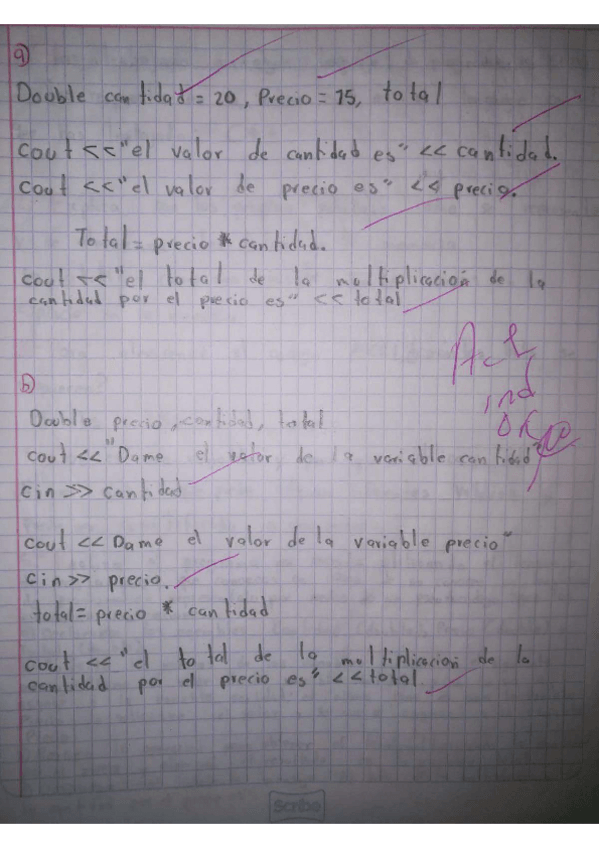 a)
Double cantidad = 20, Precio = 15, total
cout << "el valor de cantidad es" << cantidad.
cout << "el valor de precio es" << precio.
Total = precio * cantidad.
cout << "el total de la multiplicación de la
cantidad por el precio es" << total
Act
ind
OK
b)
Double precio, cantidad, total
cout << "Dame el valor de la variable cantidad"
cin >> cantidad
cout << Dame el valor de la variable precio"
cin >> precio.
total = precio * cantidad
cout << "el total de la multiplicacion de la
cantidad por el precio es" << total
Scribe